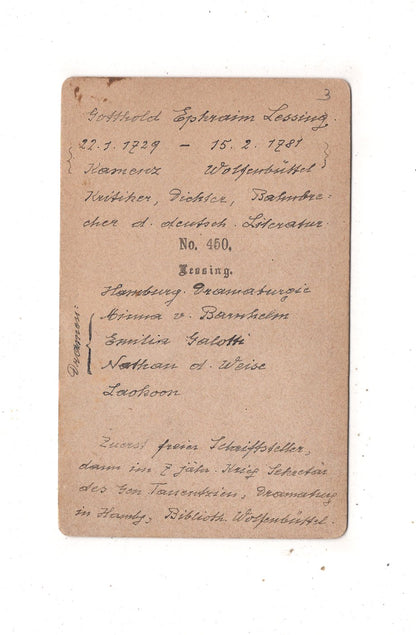 3
Gotthold Ephraim Lessing.
22.1.1729 – 15.2.1781
Kamenz Wolfenbüttel
Kritiker, Dichter, Bahnbre-
cher d. deutsch. Literatur.
No. 450.
Lessing.
Hamburg. Dramaturgie
Dramen:
Minna v. Barnhelm
Emilia Galotti
Nathan d. Weise
Laokoon
Zuerst freier Schriftsteller,
dann im 7 jähr. Krieg Sekretär
des Gen Tauentzien, Dramaturg
in Hambg, Biblioth. Wolfenbüttel.